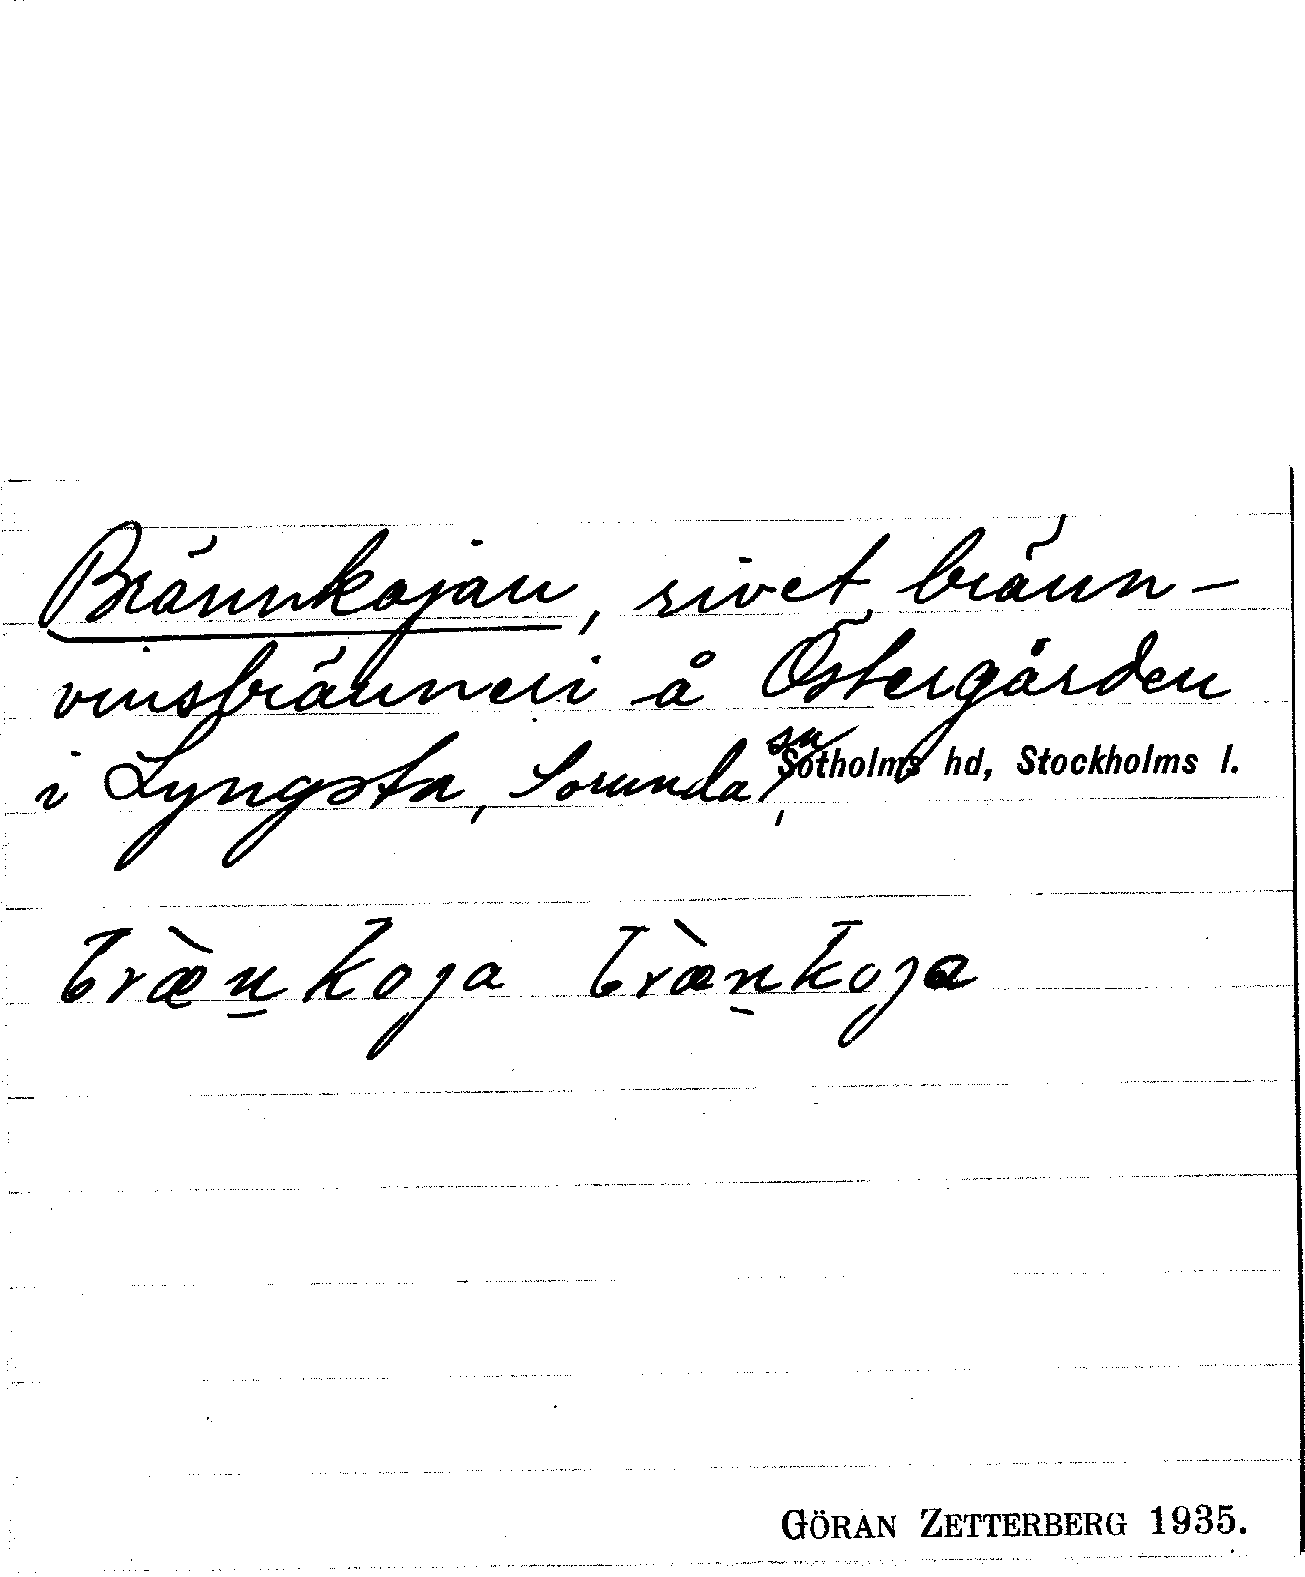 Brännkojan, rivet bränn-
vinsbränneri å Östergården
i Lyngsta, Sorunda sn, Sotholms hd, Stockholms l.
bràn̲koja bràn̲koja
GÖRAN ZETTERBERG 1935.